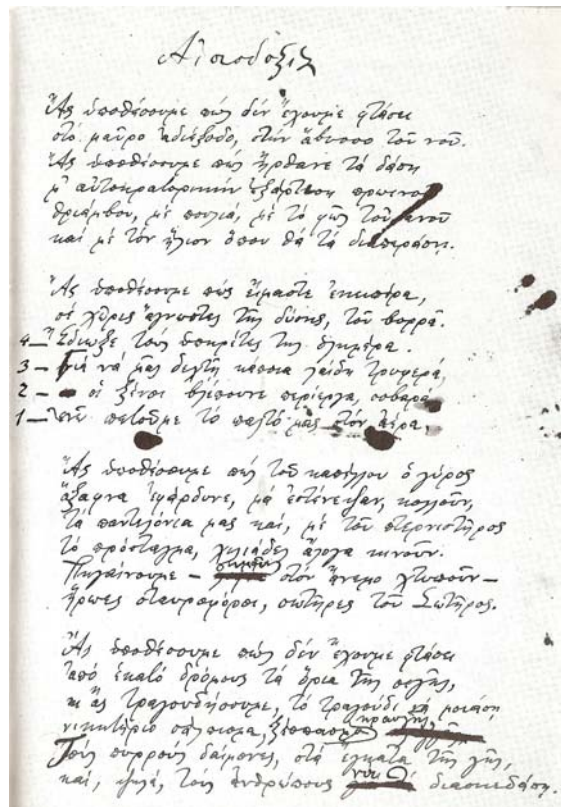 Αἰσιοδοξία
Ἂς ὑποθέσουμε πὼς δὲν ἔχουμε φτάσει
στὸ μαῦρο ἀδιέξοδο, στὴν ἄβυσσο τοῦ νοῦ.
Ἂς ὑποθέσουμε πὼς ἤρθανε τὰ δάση
μ' αὐτοκρατορικὴν ἐξάρτηση πρωινοῦ
θριάμβου, μὲ πουλιά, μὲ τὸ φῶς τοὐρανοῦ
καὶ μὲ τὸν ἥλιον ὅπου θὰ τὰ διαπεράσῃ.
Ἂς ὑποθέσουμε πὼς εἴμαστε ἐκειπέρα,
σὲ χῶρες ἄγνωστες τῆς δύσης, τοῦ βορρᾶ.
4— Ἔδιωξε τοὺς ὑπηρέτες της ὁλημέρα.
3— Γιὰ νὰ μᾶς δεχτῆ κάποια λαίδη τρυφερά,
2— οἱ ξένοι βλέπουνε περίεργα, σοβαρά
1— ἐνῶ πετοῦμε τὸ παλτό μας στὸν ἀέρα,
Ἂς ὑποθέσουμε πὼς τοῦ καπέλλου ὁ γύρος
ἄξαφνα ἐφάρδυνε, μὰ ἐστένεψαν, κολλοῦν,
τὰ παντελόνια μας καί, μὲ τοῦ πτερνιστῆρος
τὸ πρόσταγμα, χιλιάδες ἄλογα κινοῦν.
Πηγαίνουμε — στὸν ἄνεμο χτυποῦν —
ἥρωες σταυροφόροι, σωτῆρες τοῦ Σωτῆρος.
Ἂς ὑποθέσουμε πὼς δὲν ἔχουμε φτάσει
ἀπὸ ἑκατὸ δρόμους τὰ ὅρια τῆς σιγῆς,
κι ἂς τραγουδήσουμε, τὸ τραγούδι νὰ μοιάσῃ
νικητήριο σάλπισμα, ξέσπασμα κραυγῆς,
Τοὺς πυρροὺς δαίμονες, στὰ ἔγκατα τῆς γῆς,
καί, ψηλά, τοὺς ἀνθρώπους νὰ διασκεδάσῃ.